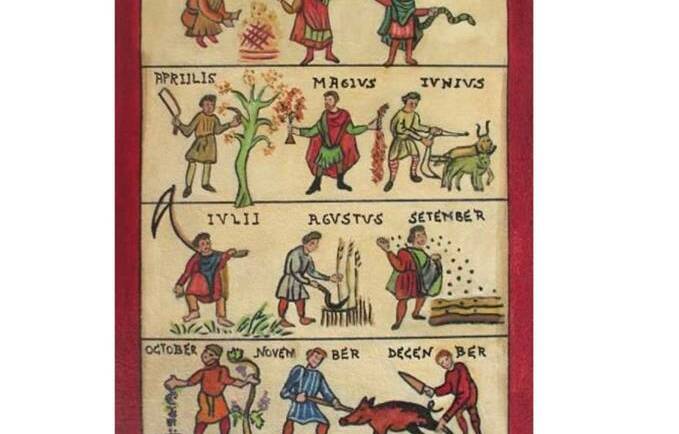 APRIJLIS MAGIVS IVNIVS
IVLII AGVSTVS SETENBER
OCTOBER NOVEM BER DECEN BER